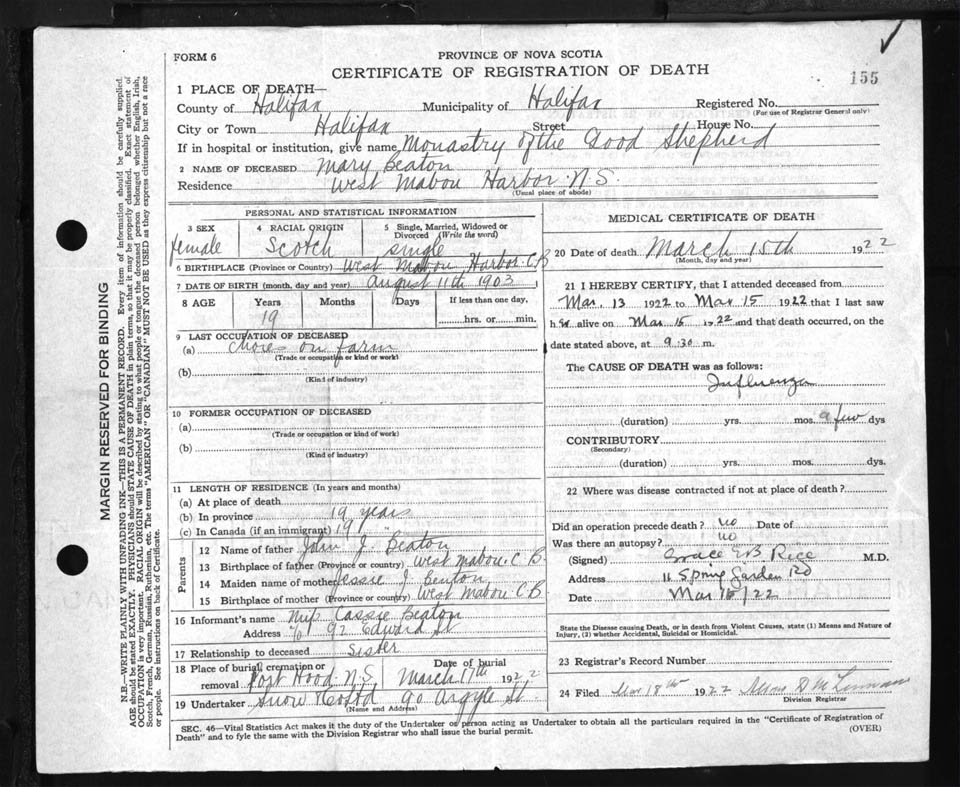 FORM 6
PROVINCE OF NOVA SCOTIA
CERTIFICATE OF REGISTRATION OF DEATH
155
1 PLACE OF DEATH—
County of Halifax Municipality of Halifax Registered No.
(For use of Registrar General only)
City or Town Halifax Street House No.
If in hospital or institution, give name Monastry of the Good Shepherd
2 NAME OF DECEASED Mary Beaton
Residence West Mabou Harbor N.S.
(Usual place of abode)
PERSONAL AND STATISTICAL INFORMATION
3 SEX 4 RACIAL ORIGIN 5 Single, Married, Widowed or Divorced (Write the word)
female Scotch single
6 BIRTHPLACE (Province or Country) West Mabou Harbor C.B
7 DATE OF BIRTH (month, day and year) August 11th 1903
8 AGE Years Months Days If less than one day,
19 hrs. or min.
9 LAST OCCUPATION OF DECEASED
(a) chores on farm
(Trade or occupation or kind or work)
(b)
(Kind of industry)
10 FORMER OCCUPATION OF DECEASED
(a)
(Trade or occupation or kind of work)
(b)
(Kind of industry)
11 LENGTH OF RESIDENCE (In years and months)
(a) At place of death
(b) In province 19 years
(c) In Canada (if an immigrant) 19
Parents
12 Name of father John J. Beaton
13 Birthplace of father (Province or country) West Mabou C.B
14 Maiden name of mother Jessie J.
15 Birthplace of mother (Province or country) West Mabou C.B
16 Informant's name Miss Cassie Beaton
Address % 92 Edward St
17 Relationship to deceased Sister
18 Place of burial, cremation or removal Port Hood N.S. Date of burial March 17th 1922
19 Undertaker Snow 90 Argyle St.
(Name and Address)
MEDICAL CERTIFICATE OF DEATH
20 Date of death March 15th 1922
(Month, day and year)
21 I HEREBY CERTIFY, that I attended deceased from
Mar. 13 1922 to Mar 15 1922 that I last saw
her alive on Mar 15 1922 and that death occurred, on the
date stated above, at 9.30 m.
The CAUSE OF DEATH was as follows:
Influenza
(duration) yrs. mos. a few dys
CONTRIBUTORY
(Secondary)
(duration) yrs. mos. dys.
22 Where was disease contracted if not at place of death?
Did an operation precede death? no Date of
Was there an autopsy? no
(Signed) Grace E B Rice M.D.
Address 11 Spring Garden Rd
Date Mar 16/22
State the Disease causing Death, or in death from Violent Causes, state (1) Means and Nature of
Injury, (2) whether Accidental, Suicidal or Homicidal.
23 Registrar's Record Number
24 Filed 18th 1922
Division Registrar
SEC. 46—Vital Statistics Act makes it the duty of the Undertaker or person acting as Undertaker to obtain all the particulars required in the "Certificate of Registration of
Death" and to fyle the same with the Division Registrar who shall issue the burial permit.
(OVER)
MARGIN RESERVED FOR BINDING
N.B.—WRITE PLAINLY WITH UNFADING INK—THIS IS A PERMANENT RECORD. Every item of information should be carefully supplied.
AGE should be stated EXACTLY. PHYSICIANS should STATE CAUSE OF DEATH in plain terms, so that it may be properly classified. Exact statement of
OCCUPATION is very important. RACIAL ORIGIN will be described by stating to what people or tongue the deceased person belonged whether English, Irish,
Scotch, French, German, Russian, Ruthenian, etc. The terms "AMERICAN" OR "CANADIAN" MUST NOT BE USED as they express citizenship but not a race
or people. See instructions on back of Certificate.